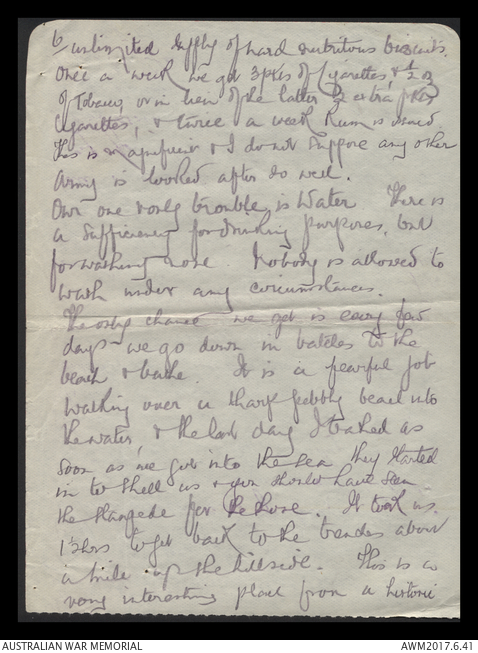 6/ unlimited supply of hard nutritious biscuits.
Once a week we get 3 pkts of Cigarettes, & ½ oz
of Tobacco or in lieu of the latter 2 extra pkts
Cigarettes, & twice a week Rum is issued.
This is magnificent & I do not suppose any other
Army is looked after so well.
Our one & only trouble is water There is
a sufficiency for drinking purposes, but
for washing none Nobody is allowed to
wash under any circumstances.
The only chance we get is every few
days we go down in batches to the
beach & bathe. It is a fearful job
walking over a sharp pebbly beach into
the water, & the last day I bathed as
soon as we got into the sea they started
in to shell us & you should have seen
the stampede for the shore. It took us
1½ hrs to get back to the trenches about
a mile up the hillside. This is a
very interesting place from a historic
AUSTRALIAN WAR MEMORIAL
AWM2017.6.41